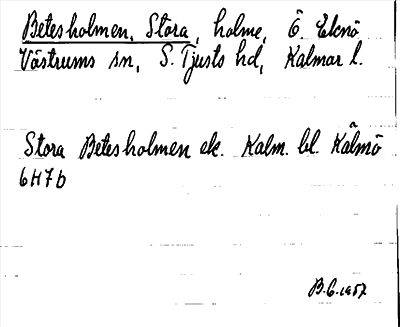 Betesholmen, Stora, holme, Ö. Eknö
Västrums sn, S. Tjusts hd, Kalmar l.
Stora Betesholmen ek. Kalm. bl. Kålmö
6H7b
B.G. 1957